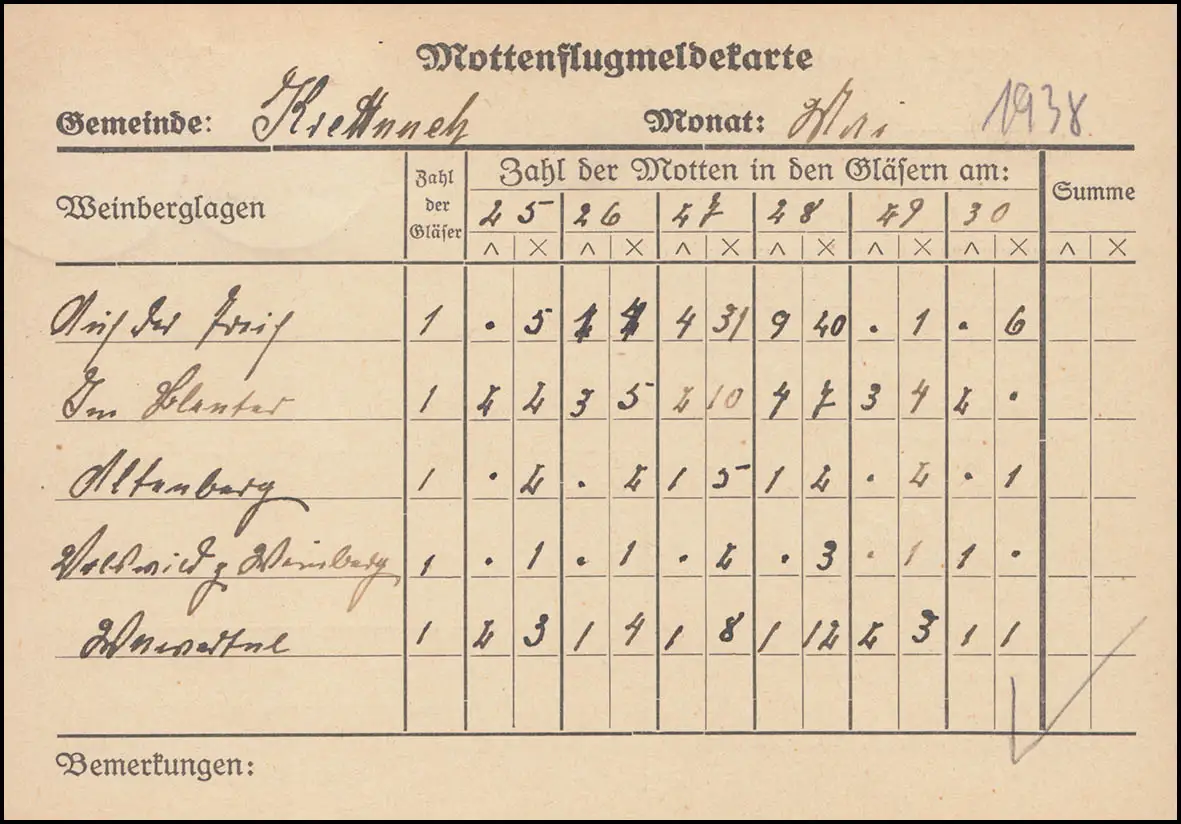 Mottenflugmeldekarte
Gemeinde: Krettnach Monat: Mai 1938
Weinberglagen Zahl der Gläser Zahl der Motten in den Gläsern am: Summe
25 26 27 28 29 30
^ × ^ × ^ × ^ × ^ × ^ × ^ ×
Auf der 1 . 5 4 31 9 20 . 1 . 6
Im 1 2 2 3 5 2 10 4 7 3 4 2 .
Altenberg 1 . 2 . 2 1 5 1 2 . 2 . 1
Weinberg 1 . 1 . 1 . 2 . 3 . 1 1 .
1 2 3 1 4 1 8 1 12 2 3 1 1
Bemerkungen: